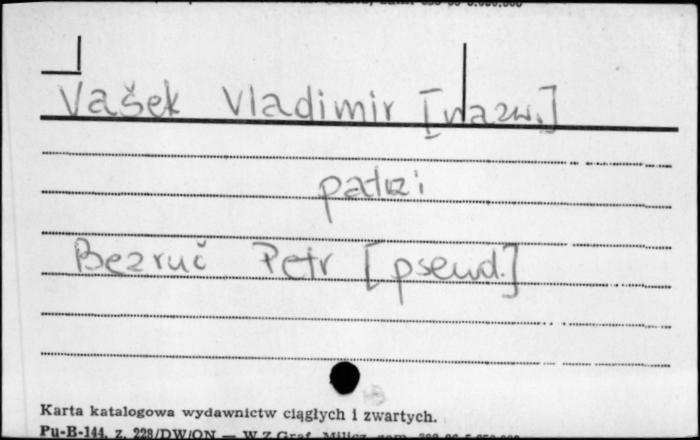 Vašek Vladimir [nazw.]
patrz i
Bezruč Petr [pseud.]
Karta katalogowa wydawnictw ciągłych i zwartych.
Pu-B-144, z. 228/DW/ON — W.Z.Graf. Milicz, zam.